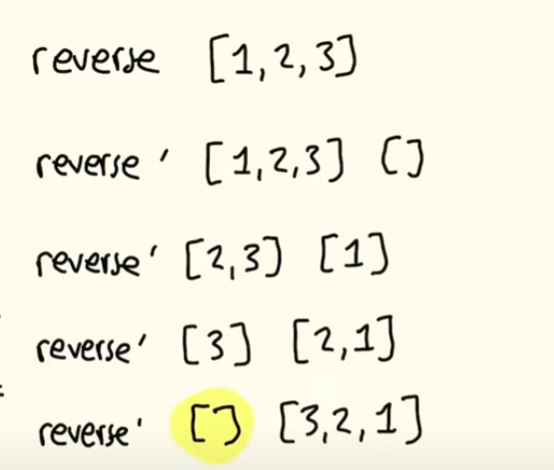 reverse [1,2,3]
reverse ' [1,2,3] []
reverse' [2,3] [1]
reverse' [3] [2,1]
reverse' [] [3,2,1]